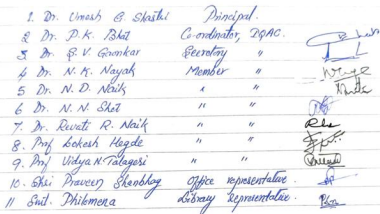 1. Dr. Umesh G Shastri Principal.
2 Dr. P.K. Bhat Co-ordinator, IQAC.
3 Dr. G.V. Gaonkar Secretary "
4 Dr. N.K. Nayak Member "
5 Dr. N.D. Naik " "
6 Dr. N.N. Shet " "
7. Dr. Revati R. Naik " "
8. Prof Lokesh Hegde " "
9. Prof Vidya N. Talageri " "
10. Shri Praveen Shanbhag Office representative.
11 Smt. Philomena Library Representative.